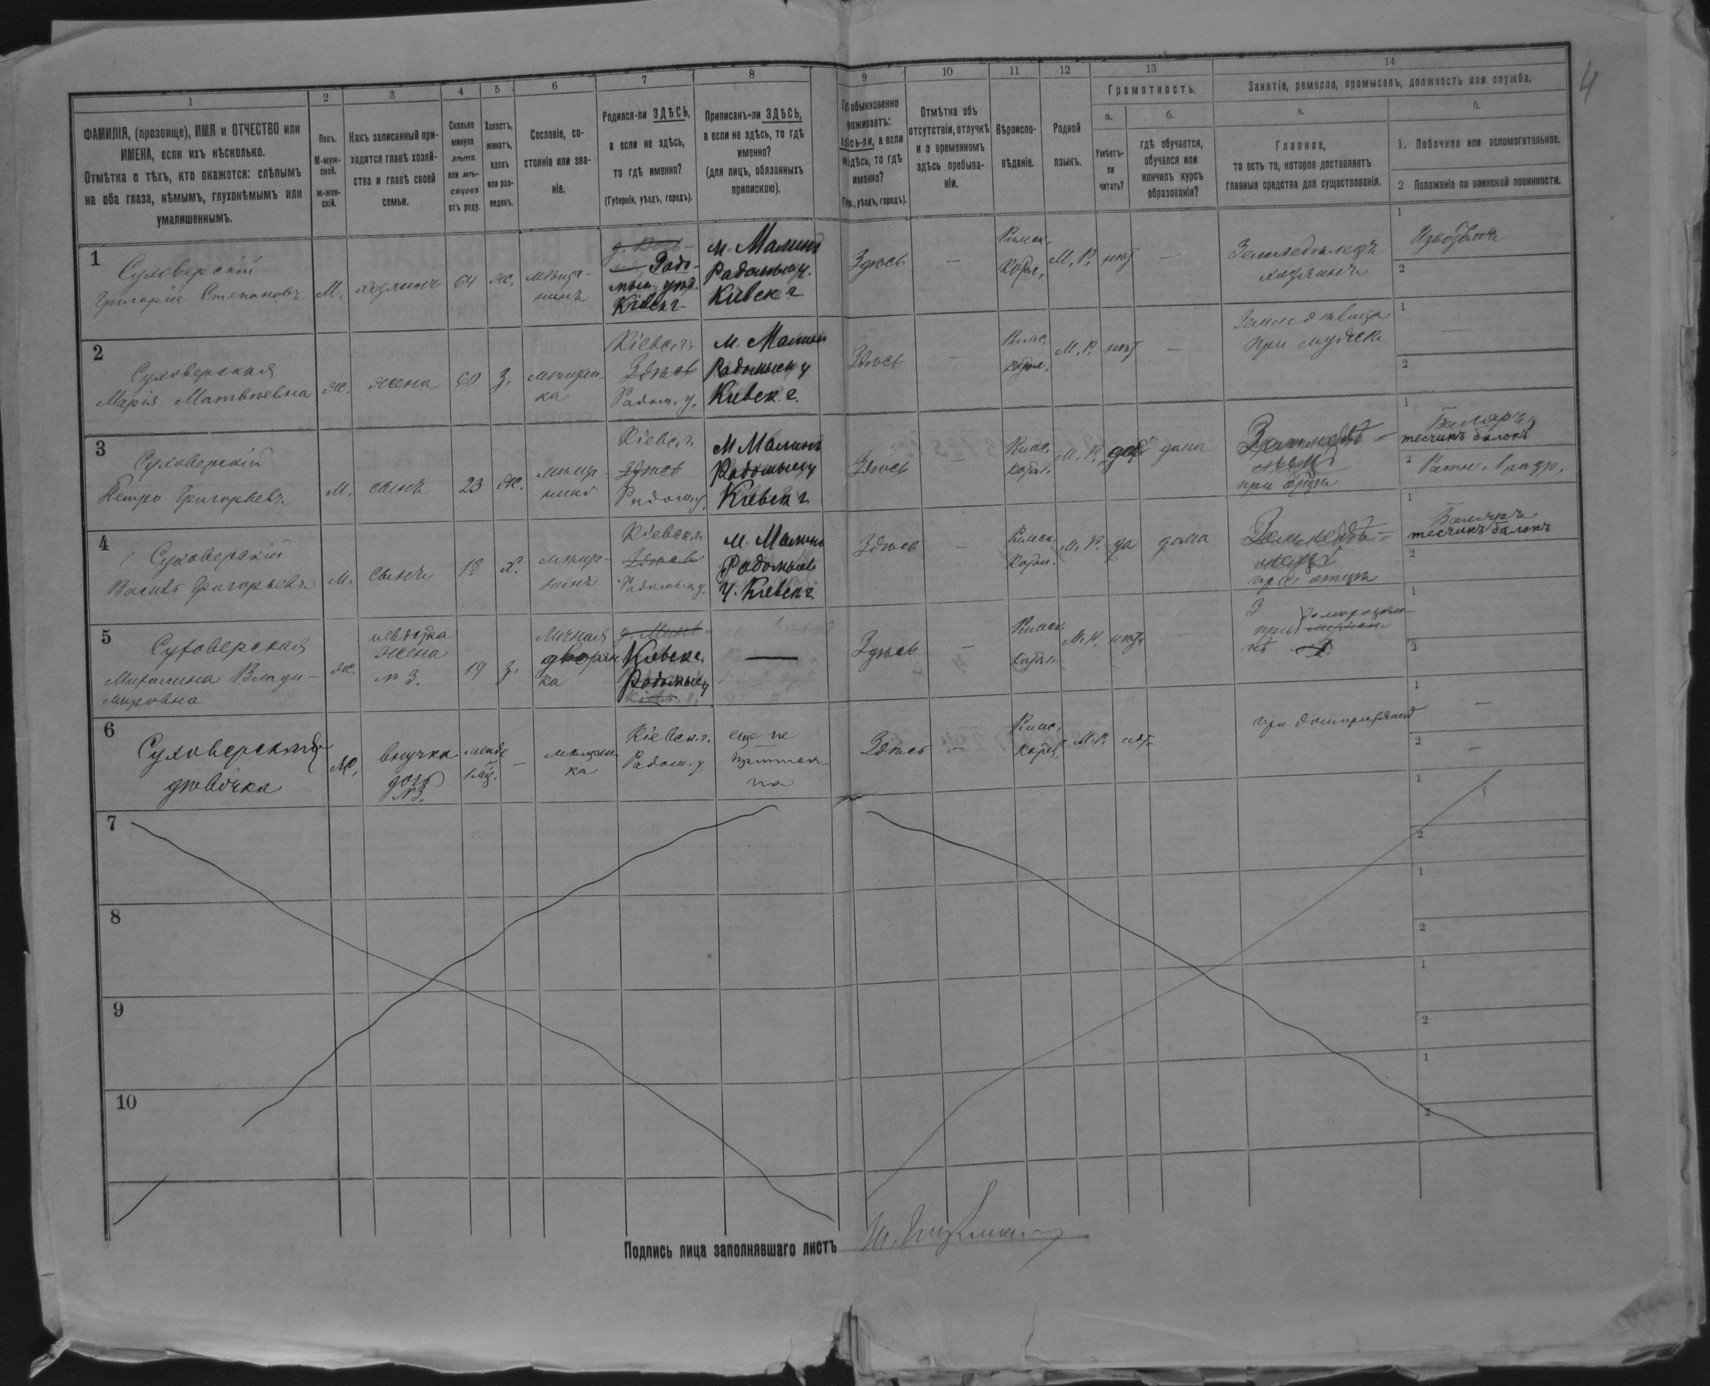 4
1
2
3
4
5
6
7
8
9
10
11
12
13
14
ФАМИЛІЯ, (прозвище), ИМЯ и ОТЧЕСТВО или
ИМЕНА, если ихъ нѣсколько.
Отмѣтка о тѣхъ, кто окажется: слѣпымъ
на оба глаза, нѣмымъ, глухонѣмымъ или
умалишеннымъ.
Полъ.
М-муж-
ской.
ж-жен-
скій.
Какъ записанный при-
ходится главѣ хозяй-
ства и главѣ своей
семьи.
Сколько
минуло
лѣтъ
или мѣ-
сяцевъ
отъ роду.
Холостъ,
женатъ,
вдовъ
или раз-
веденъ.
Сословіе, со-
стояніе или зва-
ніе.
Родился-ли ЗДѢСЬ,
а если не здѣсь,
то гдѣ именно?
(Губернія, уѣздъ, городъ).
Приписанъ-ли ЗДѢСЬ,
а если не здѣсь, то гдѣ
именно?
(для лицъ, обязанныхъ
припискою).
обыкновенно
здѣсь-ли, а если
здѣсь, то гдѣ
именно?
уѣздъ, городъ).
Отмѣтка объ
отсутствіи, отлучкѣ
и о временномъ
здѣсь пребыва-
ніи.
Вѣроиспо-
вѣданіе.
Родной
языкъ.
Грамотность.
а.
б.
Умѣетъ-
ли
читать?
гдѣ обучается,
обучался или
кончилъ курсъ
образованія?
Занятіе, ремесло, промыселъ, должность или служба.
а.
б.
Главное,
то есть то, которое доставляетъ
главныя средства для существованія.
1. Побочное или вспомогательное.
2 Положеніе по воинской повинности.
1
Суховерскій
Григорій Степановъ
М.
хозяинъ
64
ж.
мѣща-
нинъ
Радо-
мыс. уѣз.
Кіевск г.
м. Малинъ
Радомыс у.
Кіевск г.
Здѣсь
—
Римск.
Катол.
М. Р.
нѣтъ
—
Земледѣлецъ
хозяинъ
1
2
2
Суховерская
Марія Матвѣевна
ж.
жена
60
З.
мѣщан-
ка
Кіевск. г.
Здѣсь
Радом. у.
м. Малинъ
Радомыс у
Кіевск г.
Здѣсь
—
Римс.
катол.
М. Р.
нѣтъ
—
при мужѣ
1
2
3
Суховерскій
Петро Григорьевъ
М.
сынъ
23
ж.
мѣща-
нинъ
Кіевск. г.
Здѣсь
Радом. у.
м Малинъ
Радомыс у
Кіевск г
Здѣсь
—
Римс.
катол.
М. Р.
да
дома
при отцѣ
1
тесчикъ балокъ
2
Ратн. 1 разр.
4
Суховерскій
Василь Григорьевъ
М.
сынъ
18
х.
мѣща-
нинъ
Кіевск г.
Здѣсь
Радомыс у.
м. Малинъ
Радомыс
у. Кіевск г
Здѣсь
—
Римск.
Катол.
М. Р.
да
дома
при отцѣ
1
тесчикъ балокъ
2
5
Суховерская
Михалина Влади-
мировна
ж.
невѣстка
жена
№ 3.
19
з.
Личная
дворян
ка
Кіевск г.
Радомыс у
—
Здѣсь
—
Римск.
катол.
М. Р.
нѣтъ
—
при
1
2
6
Суховерская
дѣвочка
Ж.
внучка
дочь
№3.
—
мѣщан
ка
Кіевск. г.
Радом. у.
еще не
Здѣсь
—
Римс.
катол.
М. Р.
нѣт.
1
—
2
—
7
1
2
8
1
2
9
1
2
10
1
2
Подпись лица заполнявшаго листъ